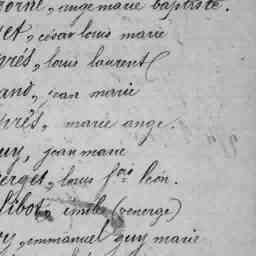 orne, ange marie baptiste.
et, césar louis marie
grés, louis laurent
and, jean marie
près, marie ange.
uy, jean marie
erges, louis fois léon.
libot, emile (venerge)
ry, emmanuel guy marie